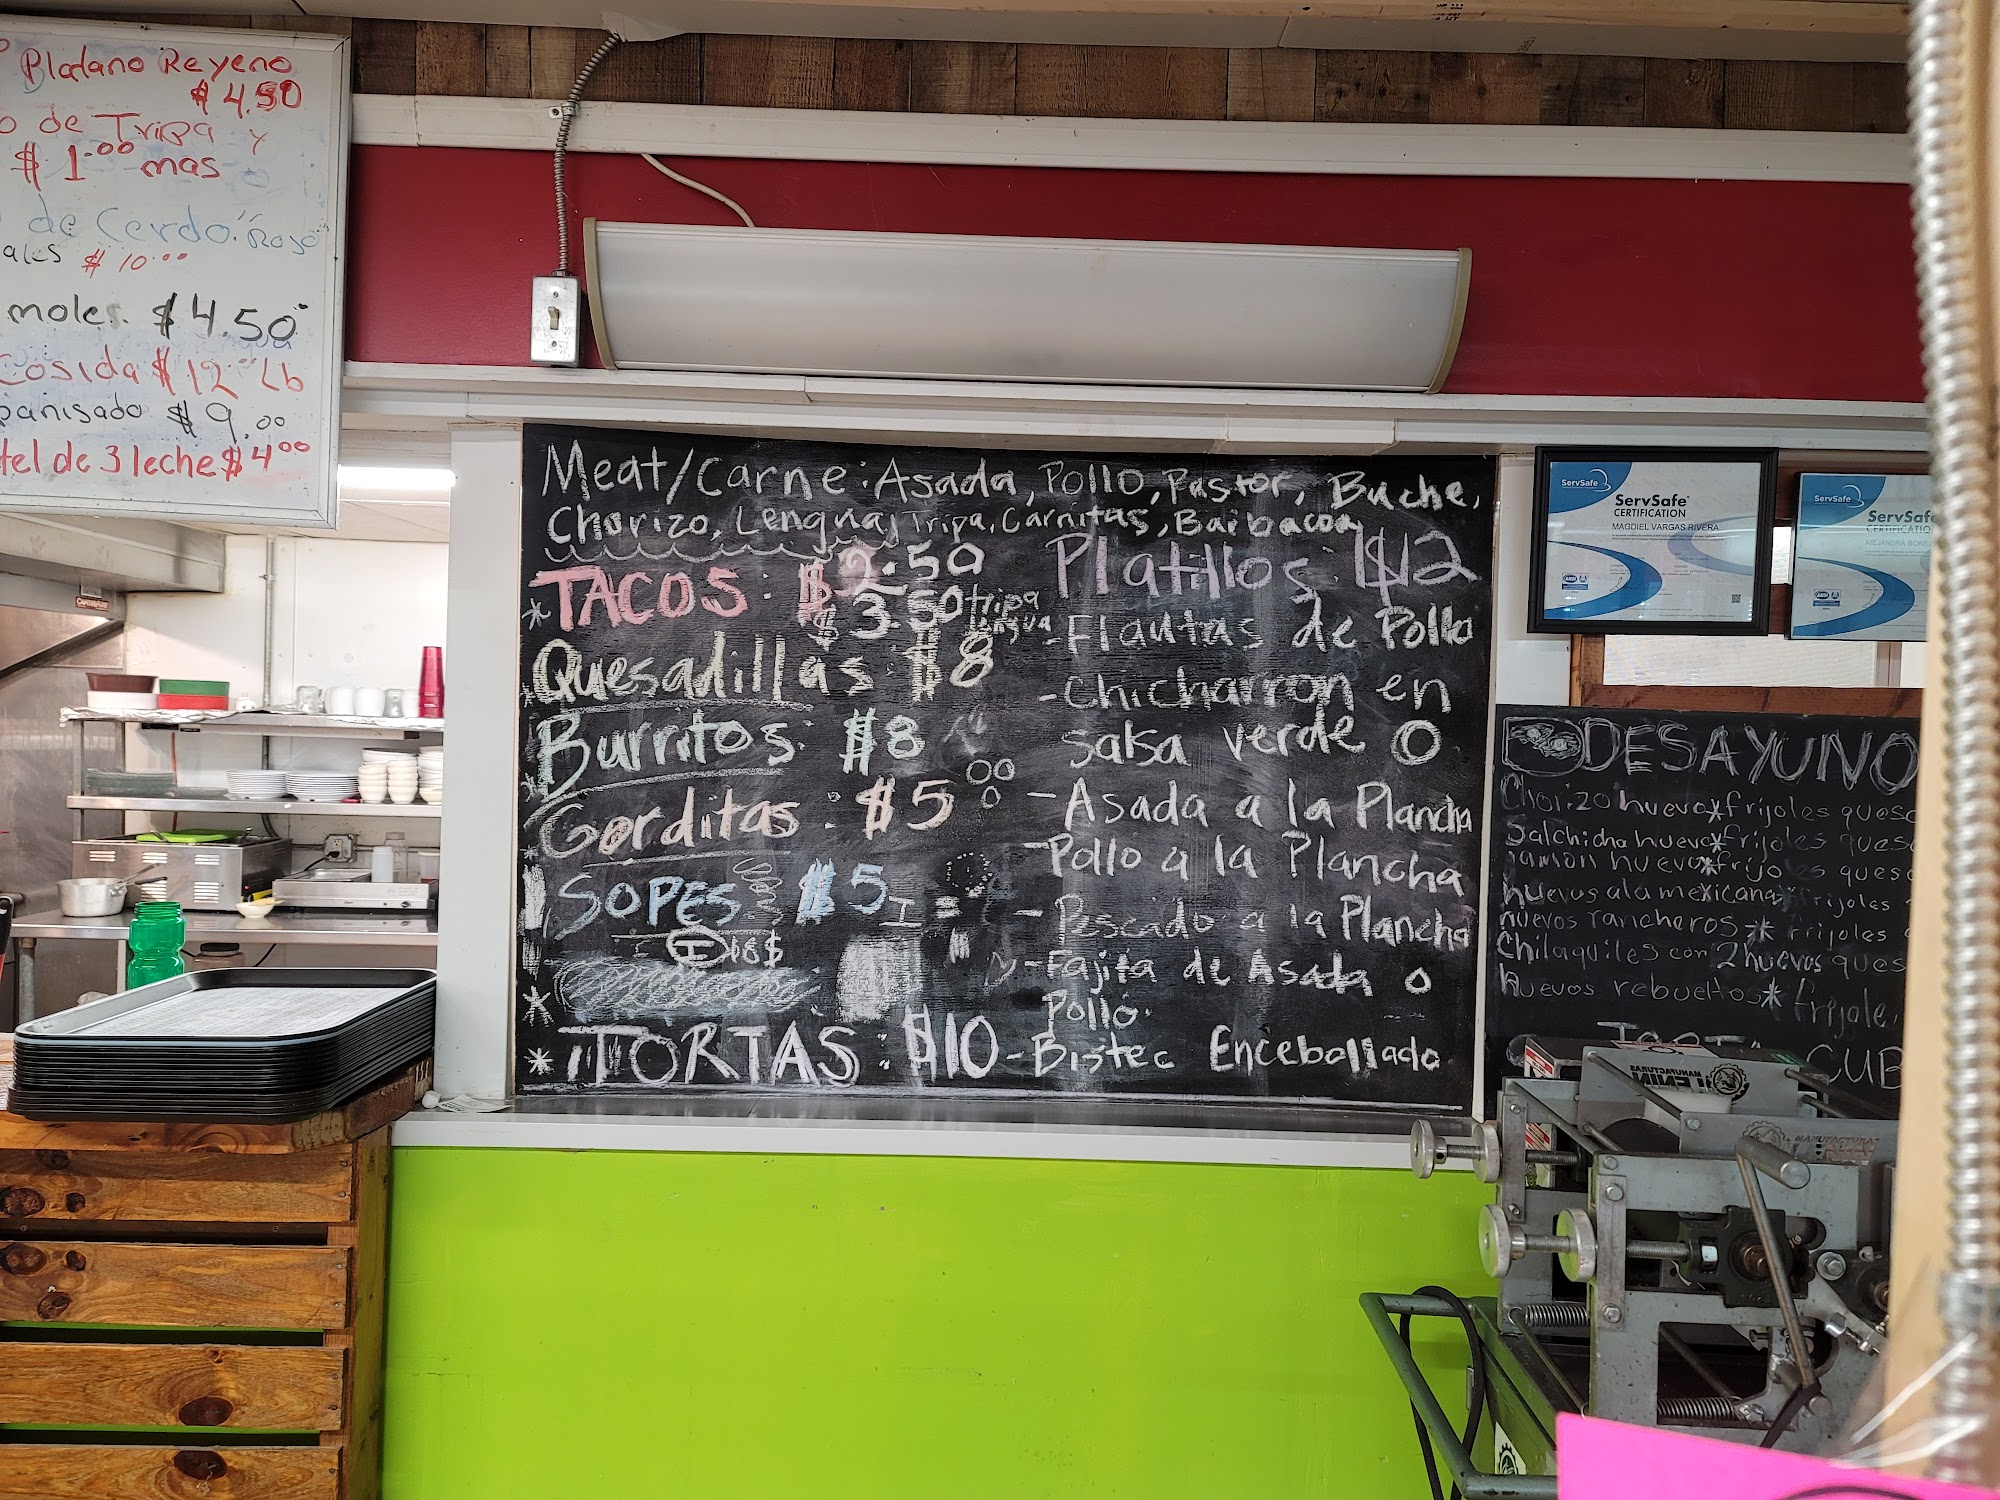 Pladano Reyeno
$4.50
de Tripa y
$1.00 mas
de Cerdo. "Roso
ales $10.00
moles $4.50
Cosida $12 Lb
panisado $9.00
tel de 3 leche $4.00
Meat/Carne: Asada, Pollo, Pastor, Buche,
Chorizo, Lengua, Tripa, Carnitas, Barbacoa
* TACOS: $2.50
$3.50 tripa lengua
Quesadillas: $8
Burritos: $8
Gorditas: $5
SOPES $5
* TORTAS: $10
Platillos: $12
- Flautas de Pollo
- Chicharron en
salsa verde O
- Asada a la Plancha
- Pollo a la Plancha
- Pescado a la Plancha
- Fajita de Asada o
Pollo.
- Bistec Encebollado
ServSafe
ServSafe®
CERTIFICATION
MAGDIEL VARGAS RIVERA
ServSafe
ServSafe
CERTIFICATIO
ALEJANDRA BONIL
DESAYUNO
Chorizo huevo*frijoles queso
Salchicha huevo*frijoles ques
jamon huevo*frijoles queso
huevos a la mexicana*frijoles
huevos rancheros*frijoles
Chilaquiles con 2 huevos ques
huevos rebueltos*frijole
TORTA CUB